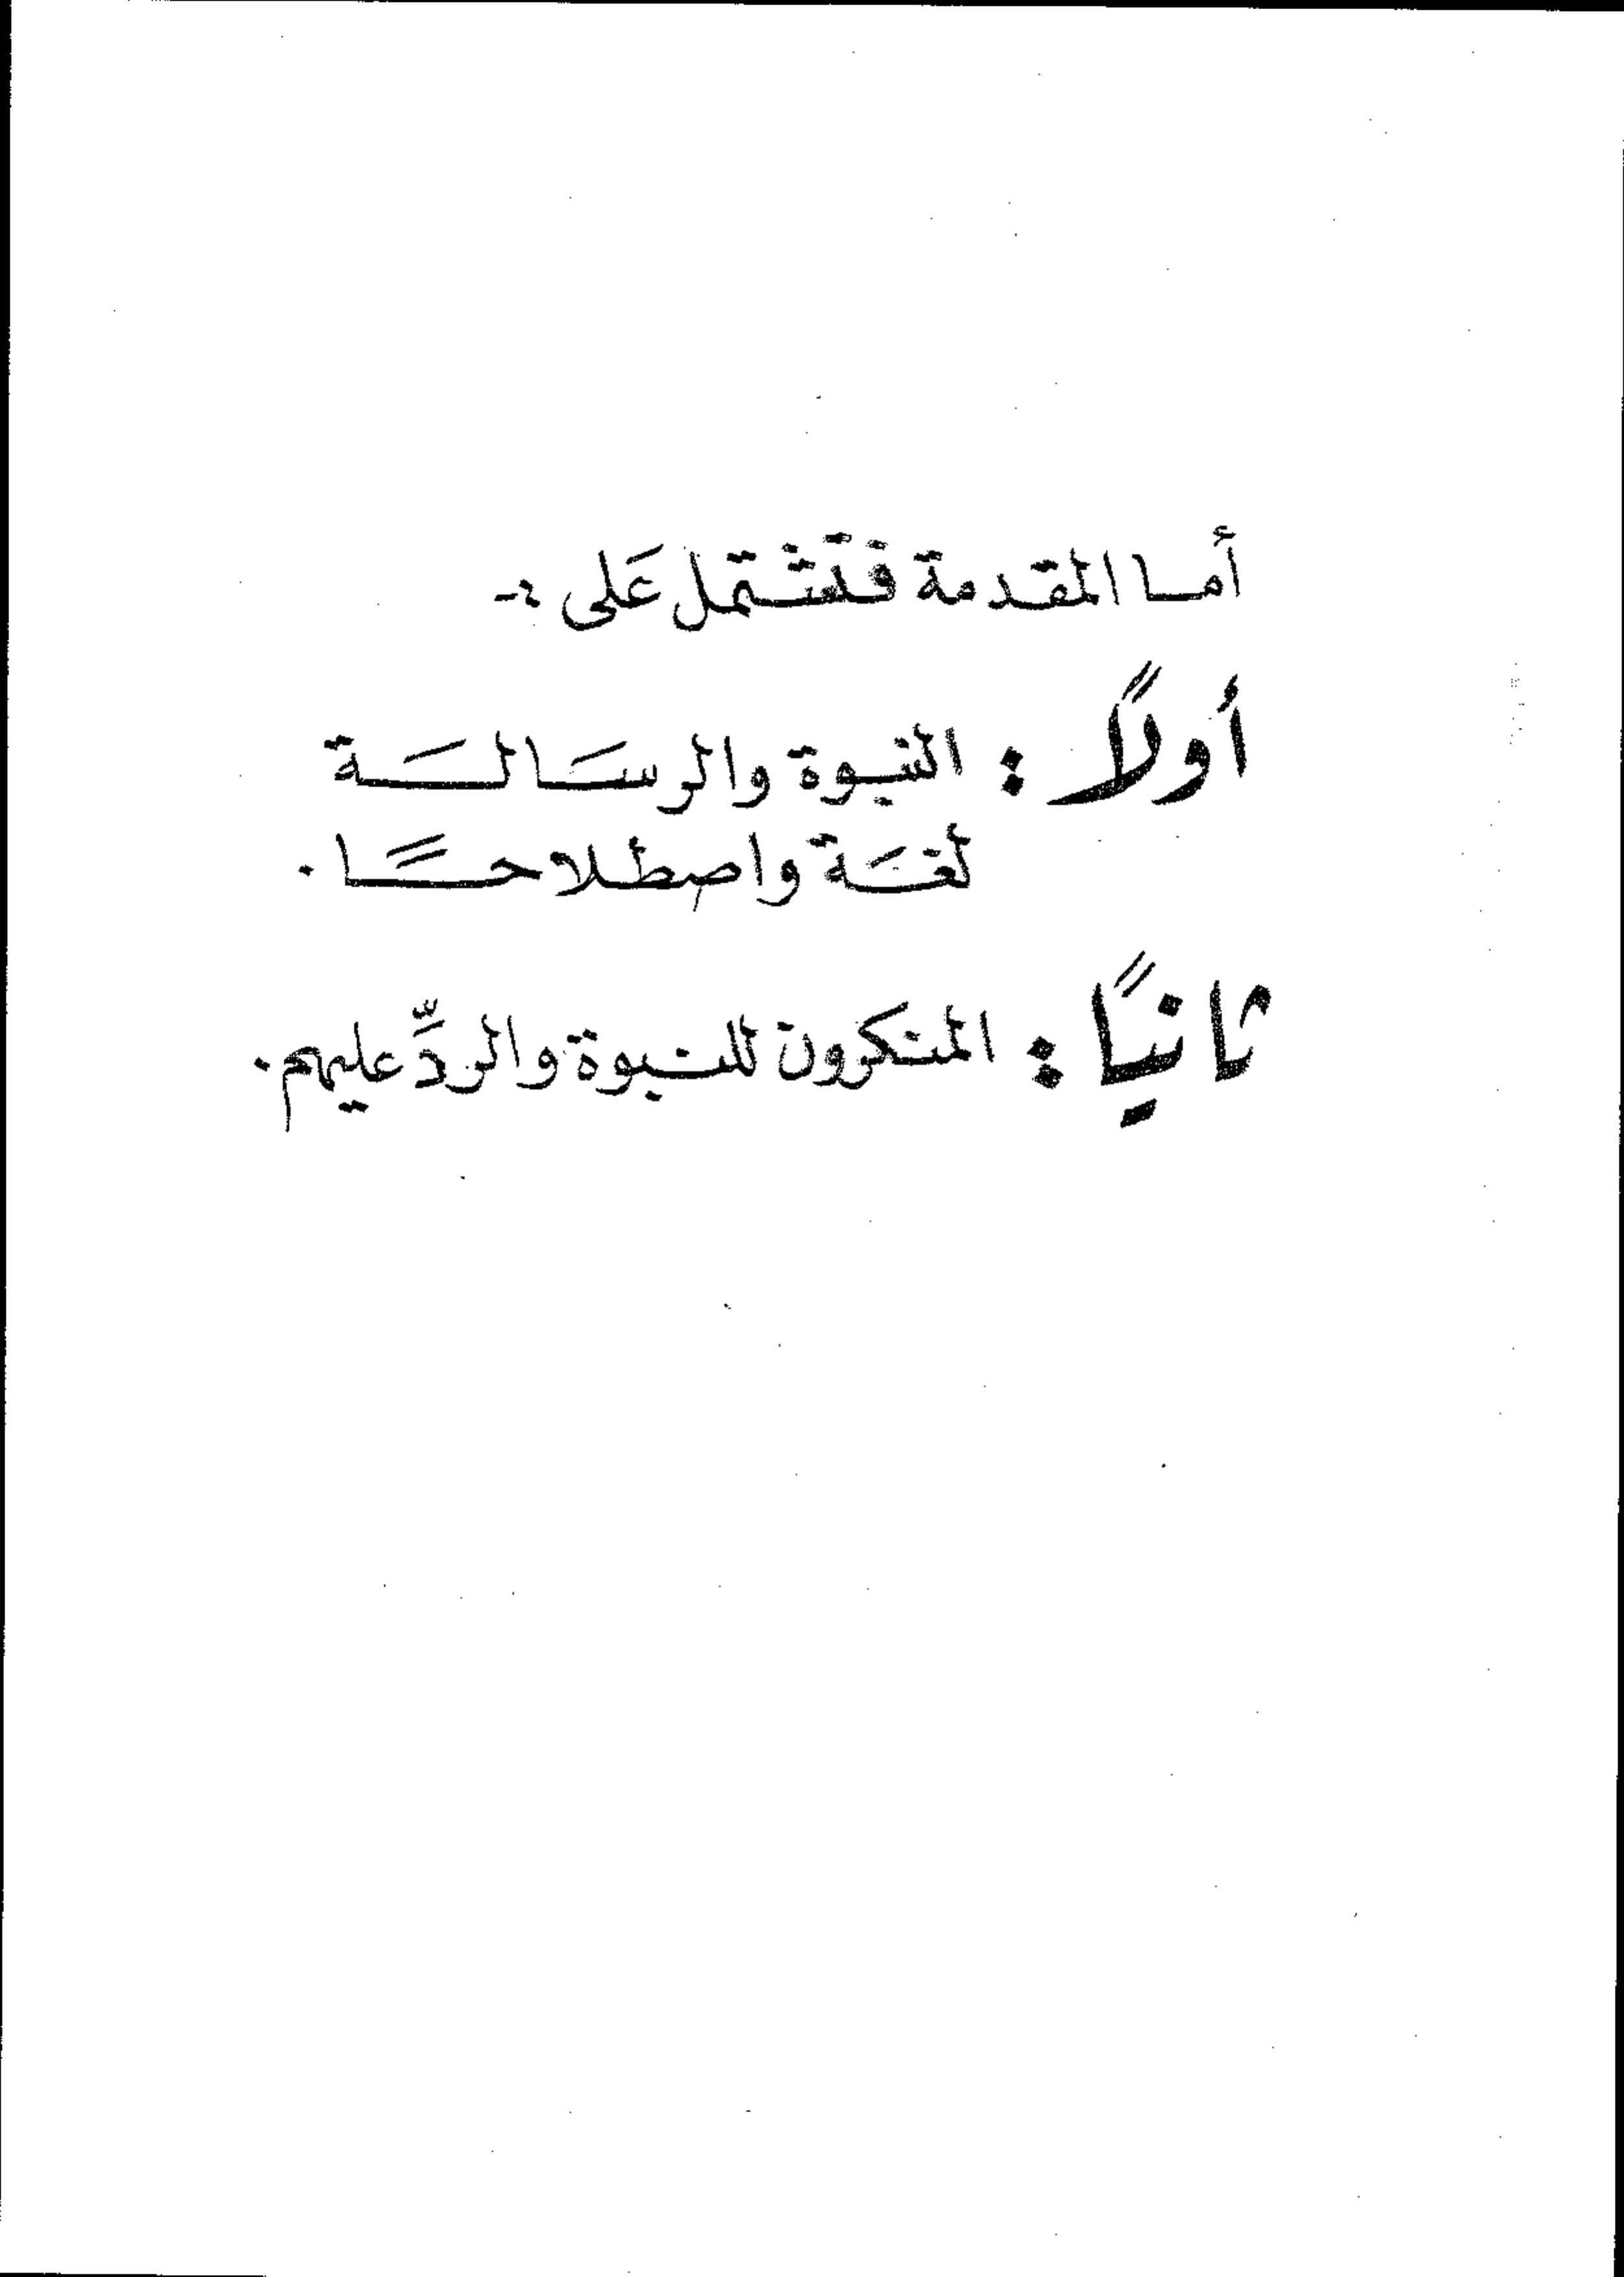 أما المقدمة فتشتمل عَلى :-
أولاً : النبوة والرسَالَـة
لغَـة واصطلاحـًا .
ثانيًا : المنكرون للنبوة والردِّ عليهم .